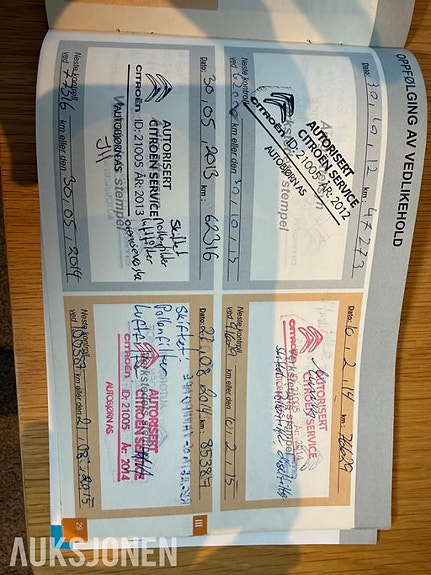 OPPFØLGING AV VEDLIKEHOLD
Dato: 30, 10, 12 km: 47273
AUTORISERT
CITROËN SERVICE
CITROËN ID: 21005 ÅR: 2012
AUTOBJØRN AS
stempel
Neste kontroll
ved km eller den 30, 10, 15
Dato: 30, 05, 2013 km: 62316
AUTORISERT
CITROËN SERVICE
CITROËN ID: 21005 ÅR: 2013
AUTOBJØRN AS
stempel
Skiftet
Pollenfilter
Luftfilter
Neste kontroll
ved 77316 km eller den 30, 05, 2014
Dato: 10, 2, 14 km: 76629
AUTORISERT
CITROËN SERVICE
CITROËN
Neste kontroll
ved 91629 km eller den 10, 2, 15
Dato: 21, 08, 2014 km: 85387
Skiftet:
Pollenfilter
Luftfilter
AUTORISERT
CITROËN SERVICE
CITROËN ID: 21005 År: 2014
AUTOBJØRN AS
Neste kontroll
ved 100387 km eller den 21, 08, 2015
III
29
AUKSJONEN